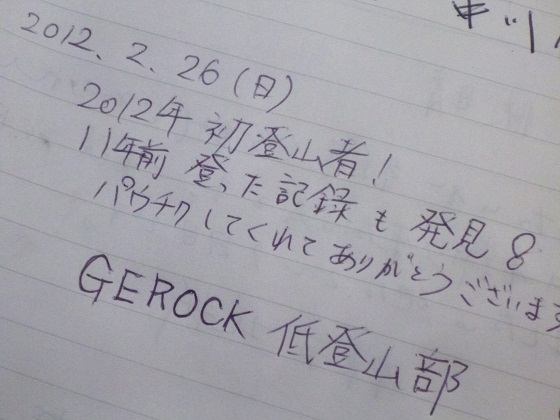 2012. 2. 26 (日)
2012年 初登山者!
11年前 登った記録も 発見8
パウチクしてくれてありがとうございます
GEROCK 低登山部